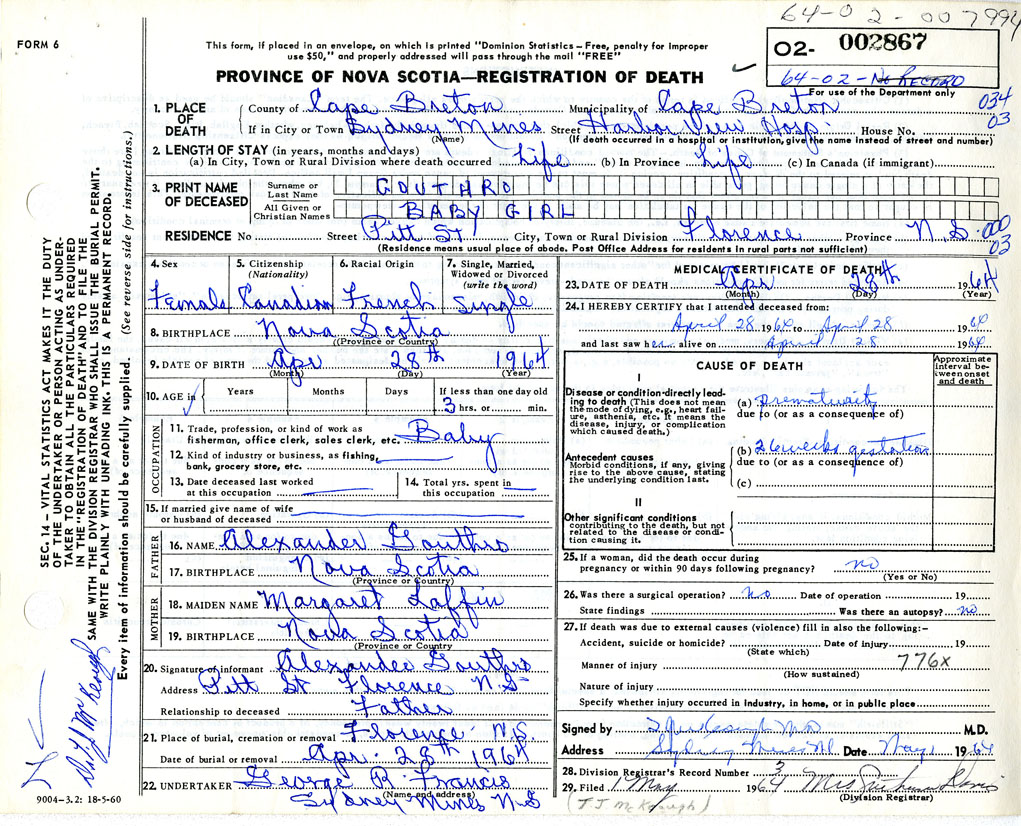 64-02-007994
FORM 6
This form, if placed in an envelope, on which is printed "Dominion Statistics—Free, penalty for improper
use $50," and properly addressed will pass through the mail "FREE"
02- 002867
64-02-No RECORD
For use of the Department only
PROVINCE OF NOVA SCOTIA—REGISTRATION OF DEATH
034
03
1. PLACE OF DEATH
County of Cape Breton Municipality of Cape Breton
If in City or Town Sydney Mines Street Harbor View Hosp. House No.
(Name) (If death occurred in a hospital or institution, give the name instead of street and number)
2. LENGTH OF STAY (in years, months and days)
(a) In City, Town or Rural Division where death occurred Life (b) In Province Life (c) In Canada (if immigrant)
3. PRINT NAME OF DECEASED
Surname or Last Name GOUTHRO
All Given or Christian Names BABY GIRL
RESIDENCE No Street Pitt St City, Town or Rural Division Florence Province N.S. 000
03
(Residence means usual place of abode. Post Office Address for residents in rural parts not sufficient)
4. Sex Female
5. Citizenship (Nationality) Canadian
6. Racial Origin French
7. Single, Married, Widowed or Divorced (write the word) Single
8. BIRTHPLACE Nova Scotia
(Province or Country)
9. DATE OF BIRTH Apr 28th 1964
(Month) (Day) (Year)
10. AGE in Years Months Days If less than one day old
3 hrs. or min.
OCCUPATION
11. Trade, profession, or kind of work as
fisherman, office clerk, sales clerk, etc. Baby
12. Kind of industry or business, as fishing,
bank, grocery store, etc.
13. Date deceased last worked
at this occupation
14. Total yrs. spent in
this occupation
15. If married give name of wife
or husband of deceased
FATHER
16. NAME Alexander Gouthro
17. BIRTHPLACE Nova Scotia
(Province or Country)
MOTHER
18. MAIDEN NAME Margaret Laffin
19. BIRTHPLACE Nova Scotia
(Province or Country
20. Signature of informant Alexander Gouthro
Address Pitt St Florence N.S
Relationship to deceased Father
21. Place of burial, cremation or removal Florence N.S.
Date of burial or removal Apr. 28th 1964
22. UNDERTAKER George R. Francis
(Name and address)
Sydney Mines N-S
MEDICAL CERTIFICATE OF DEATH
23. DATE OF DEATH Apr 28th 1964
(Month) (Day) (Year)
24. I HEREBY CERTIFY that I attended deceased from:
April 28 1964 to April 28 1964
and last saw her alive on April 28 1964
CAUSE OF DEATH
Approximate interval between onset and death
I
Disease or condition directly leading to death (This does not mean the mode of dying, e.g., heart failure, asthenia, etc. It means the disease, injury, or complication which caused death.)
(a) Prematurity
due to (or as a consequence of)
Antecedent causes
Morbid conditions, if any, giving rise to the above cause, stating the underlying condition last.
(b) 26 weeks gestation
due to (or as a consequence of)
(c)
II
Other significant conditions
contributing to the death, but not related to the disease or condition causing it.
25. If a woman, did the death occur during
pregnancy or within 90 days following pregnancy? no
(Yes or No)
26. Was there a surgical operation? No Date of operation 19
State findings Was there an autopsy? No
27. If death was due to external causes (violence) fill in also the following:—
Accident, suicide or homicide? Date of injury 19
(State which)
Manner of injury 776X
(How sustained)
Nature of injury
Specify whether injury occurred in industry, in home, or in public place
Signed by M.D.
Address Sydney Mines Date May 1 1964
28. Division Registrar's Record Number 3
29. Filed 1 May 1964 Mrs
(Division Registrar)
(T. J. McKeough)
SEC. 14—VITAL STATISTICS ACT MAKES IT THE DUTY
OF THE UNDERTAKER OR PERSON ACTING AS UNDER-
TAKER TO OBTAIN ALL THE PARTICULARS REQUIRED
IN THE "REGISTRATION OF DEATH" AND TO FILE THE
SAME WITH THE DIVISION REGISTRAR WHO SHALL ISSUE THE BURIAL PERMIT.
WRITE PLAINLY WITH UNFADING INK. THIS IS A PERMANENT RECORD.
Every item of information should be carefully supplied. (See reverse side for instructions.)
McKeough
9004-3.2: 18-5-60